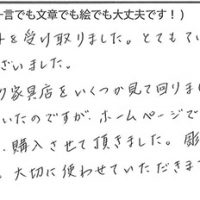 一言でも文章でも絵でも大丈夫です！）
を受け取りました。とてもてい
ございました。
家具店をいくつか見て回りまし
いたのですが、ホームページで
、購入させて頂きました。彫
、大切に使わせていただきます